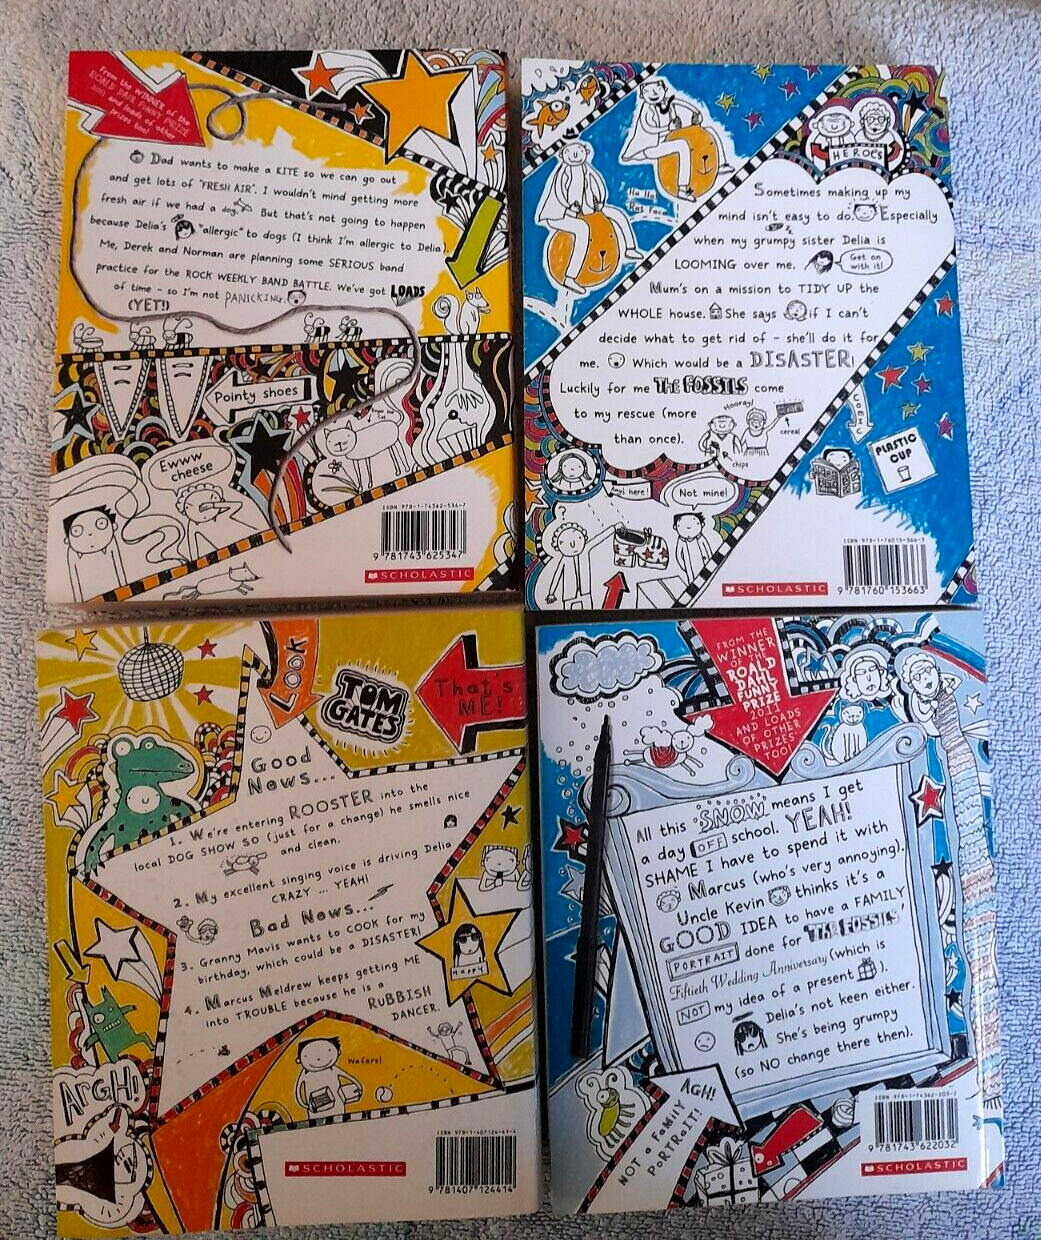 From the WINNER of the
ROALD DAHL FUNNY PRIZE
2011
and loads of other
prizes too!
Dad wants to make a KITE so we can go out
and get lots of "FRESH AIR". I wouldn't mind getting more
fresh air if we had a dog. But that's not going to happen
because Delia's "allergic" to dogs (I think I'm allergic to Delia).
Me, Derek and Norman are planning some SERIOUS band
practice for the ROCK WEEKLY BAND BATTLE. We've got LOADS
of time - so I'm not PANICKING.
(YET!)
Pointy shoes
Ewww
cheese
ISBN 978-1-74362-534-7
9 781743 625347
SCHOLASTIC
HEROES
Ha Ha
Rat face
Sometimes making up my
mind isn't easy to do. Especially
when my grumpy sister Delia is
LOOMING over me.
Get on
with it!
Mum's on a mission to TIDY UP the
WHOLE house. She says if I can't
decide what to get rid of - she'll do it for
me. Which would be a DISASTER!
Luckily for me THE FOSSILS come
to my rescue (more
than once).
Hooray!
cereal
chips
Comic
PLASTIC
CUP
Not mine!
ISBN 978-1-76015-366-3
9 781760 153663
SCHOLASTIC
Look
TOM
GATES
That's
ME!
Good
News...
1. We're entering ROOSTER into the
local DOG SHOW SO (just for a change) he smells nice
and clean.
2. My excellent singing voice is driving Delia
CRAZY ... YEAH!
Bad News...
3. Granny Mavis wants to COOK for my
birthday, which could be a DISASTER!
4. Marcus Meldrew keeps getting ME
into TROUBLE because he is a
RUBBISH
DANCER.
HAPPY
Wafers!
ARGH!
ISBN 978-1-407124-41-4
9 781407 124414
SCHOLASTIC
FROM THE
WINNER
OF THE
ROALD
DAHL
FUNNY
PRIZE
2011
AND LOADS
OF OTHER
PRIZES
TOO!
All this SNOW means I get
a day OFF school. YEAH!
SHAME I have to spend it with
Marcus (who's very annoying).
Uncle Kevin thinks it's a
GOOD IDEA to have a FAMILY
PORTRAIT done for THE FOSSILS'
Fiftieth Wedding Anniversary (which is
NOT my idea of a present).
Delia's not keen either.
She's being grumpy
(so NO change there then).
AGH!
NOT a FAMILY
PORTRAIT!
ISBN 978-1-74362-203-2
9 781743 622032
SCHOLASTIC